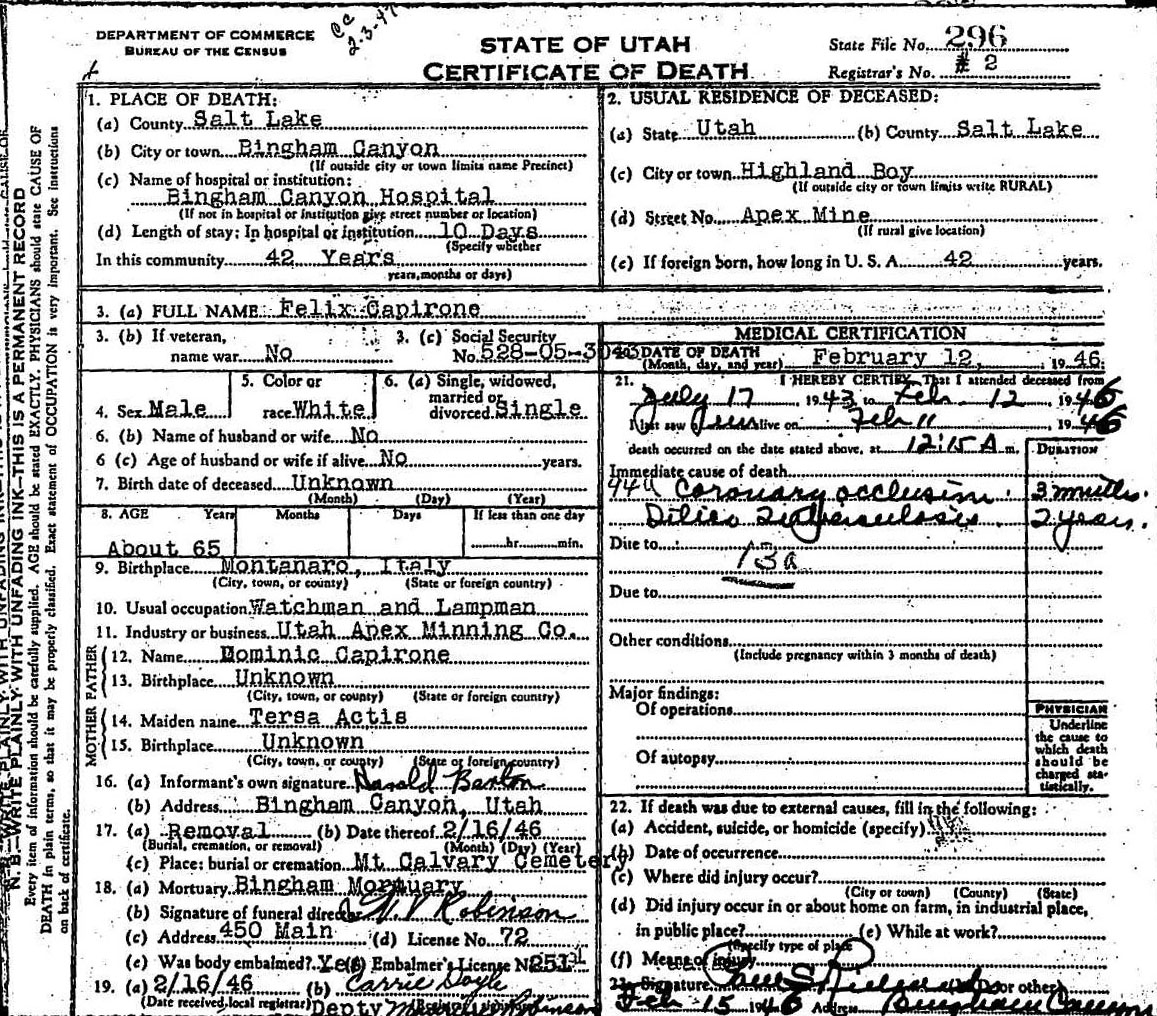 cc
2-3-47
DEPARTMENT OF COMMERCE
BUREAU OF THE CENSUS
STATE OF UTAH
CERTIFICATE OF DEATH
State File No. 296
Registrar's No. # 2
N. B.—WRITE PLAINLY WITH UNFADING INK—THIS IS A PERMANENT RECORD
Every item of information should be carefully supplied. AGE should be stated EXACTLY. PHYSICIANS should state CAUSE OF
DEATH in plain terms, so that it may be properly classified. Exact statement of OCCUPATION is very important. See instructions
on back of certificate.
1. PLACE OF DEATH:
(a) County Salt Lake
(b) City or town Bingham Canyon
(If outside city or town limits name Precinct)
(c) Name of hospital or institution:
Bingham Canyon Hospital
(If not in hospital or institution give street number or location)
(d) Length of stay: In hospital or institution 10 Days
(Specify whether
In this community 42 Years
years, months or days)
2. USUAL RESIDENCE OF DECEASED:
(a) State Utah (b) County Salt Lake
(c) City or town Highland Boy
(If outside city or town limits write RURAL)
(d) Street No. Apex Mine
(If rural give location)
(e) If foreign born, how long in U. S. A. 42 years.
3. (a) FULL NAME Felix Capirone
3. (b) If veteran,
name war No
3. (c) Social Security
No. 528-05-3043
4. Sex Male
5. Color or
race White
6. (a) Single, widowed,
married or
divorced Single
6. (b) Name of husband or wife No
6 (c) Age of husband or wife if alive No years.
7. Birth date of deceased Unknown
(Month) (Day) (Year)
8. AGE Years Months Days If less than one day
About 65 hr. min.
9. Birthplace Montanaro, Italy
(City, town, or county) (State or foreign country)
10. Usual occupation Watchman and Lampman
11. Industry or business Utah Apex Minning Co.
FATHER
12. Name Dominic Capirone
13. Birthplace Unknown
(City, town, or county) (State or foreign country)
MOTHER
14. Maiden name Tersa Actis
15. Birthplace Unknown
(City, town, or county) (State or foreign country)
16. (a) Informant's own signature Harold Barton
(b) Address Bingham Canyon, Utah
17. (a) Removal (b) Date thereof 2/16/46
(Burial, cremation, or removal) (Month) (Day) (Year)
(c) Place: burial or cremation Mt Calvary Cemetery
18. (a) Mortuary Bingham Mortuary
(b) Signature of funeral director Robinson
(c) Address 450 Main (d) License No. 72
(e) Was body embalmed? Yes (f) Embalmer's License No. 251
19. (a) 2/16/46 (b) Carrie Doyle
(Date received local registrar)
Depty Robinson
MEDICAL CERTIFICATION
DATE OF DEATH
(Month, day, and year) February 12, 1946
21. I HEREBY CERTIFY, That I attended deceased from
July 17, 1943, to Feb. 12, 1946
I last saw him alive on Feb 11 1946
death occurred on the date stated above, at 12:15 A m.
DURATION
Immediate cause of death
94a Coronary occlusion 3 months.
Silico Tuberculosis 2 years.
Due to
13a
Due to
Other conditions
(Include pregnancy within 3 months of death)
Major findings:
Of operations
Of autopsy
PHYSICIAN
Underline
the cause to
which death
should be
charged sta-
tistically.
22. If death was due to external causes, fill in the following:
(a) Accident, suicide, or homicide (specify)
(b) Date of occurrence
(c) Where did injury occur?
(City or town) (County) (State)
(d) Did injury occur in or about home on farm, in industrial place,
in public place? (e) While at work?
(Specify type of place)
(f) Means of injury
23. Signature or other)
Feb 15 1946 Address Bingham Canyon